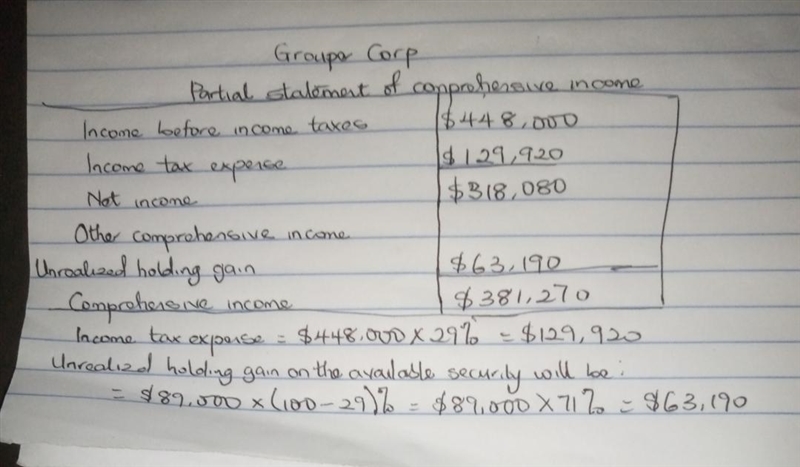 Groupo Corp
Partial statement of comprehensive income
Income before income taxes $448,000
Income tax expense $129,920
Net income $318,080
Other comprehensive income
Unrealized holding gain $63,190
Comprehensive income $381,270
Income tax expense = $448,000 × 29% = $129,920
Unrealized holding gain on the available security will be:
= $89,000 × (100 - 29)% = $89,000 × 71% = $63,190